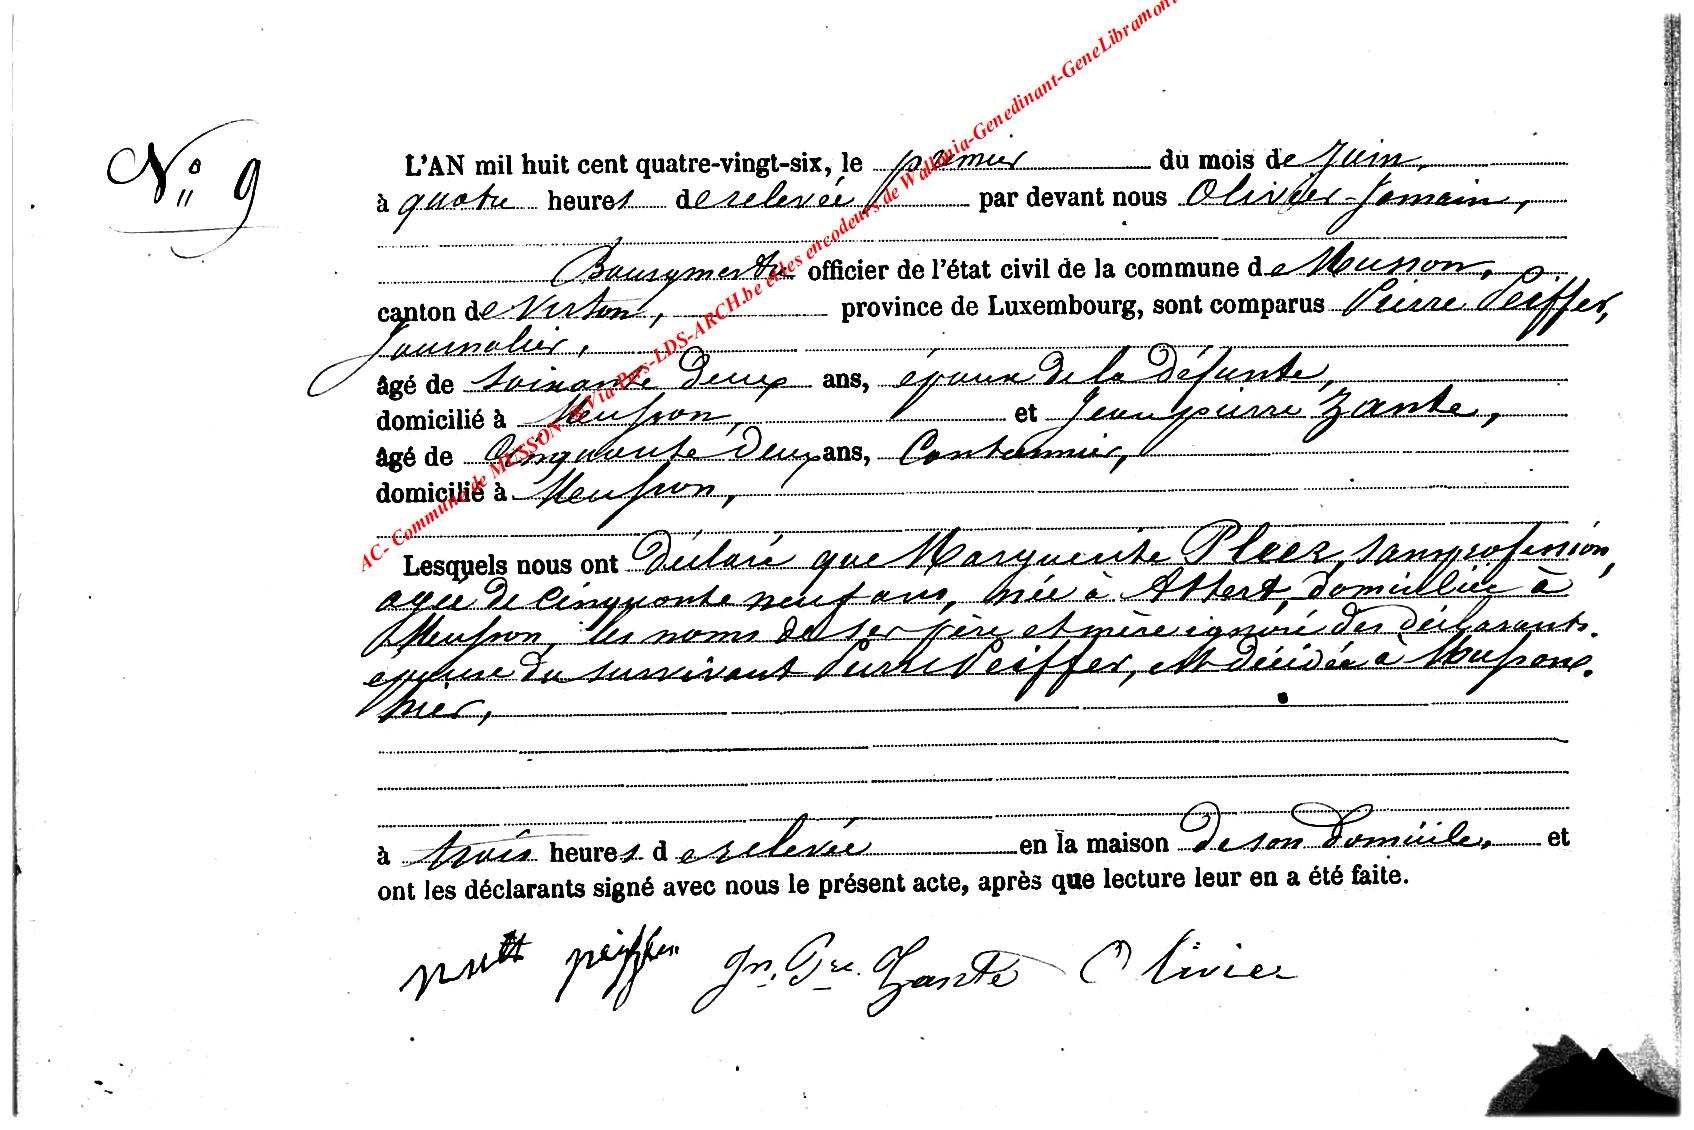 N° 9
L'AN mil huit cent quatre-vingt-six, le premier du mois de Juin,
à quatre heures de relevée, par devant nous Olivier Jamain,
Bourgmestre officier de l'état civil de la commune de Musson,
canton de Virton, province de Luxembourg, sont comparus Pierre Peiffer,
Journalier,
âgé de soixante deux ans, époux de la défunte,
domicilié à Musson, et Jean pierre Zante,
âgé de Cinquante deux ans, Cantonnier,
domicilié à Musson,
Lesquels nous ont Déclaré que Marguerite Pleer, sans profession,
agée de cinquante neuf ans, née à Attert, domiciliée à
Musson, les noms de ses père et mère ignoré des déclarants.
épouse du survivant Pierre Peiffer, est décédée à Musson.
hier,
à trois heures de relevée en la maison de son domicile, et
ont les déclarants signé avec nous le présent acte, après que lecture leur en a été faite.
peiffer Jn. Pre. Zante Olivier
AC- Commune de MUSSON @Via Pays-LDS-ARCH.be et les encodeurs de Wallonia-Genedinant-GeneLibramont